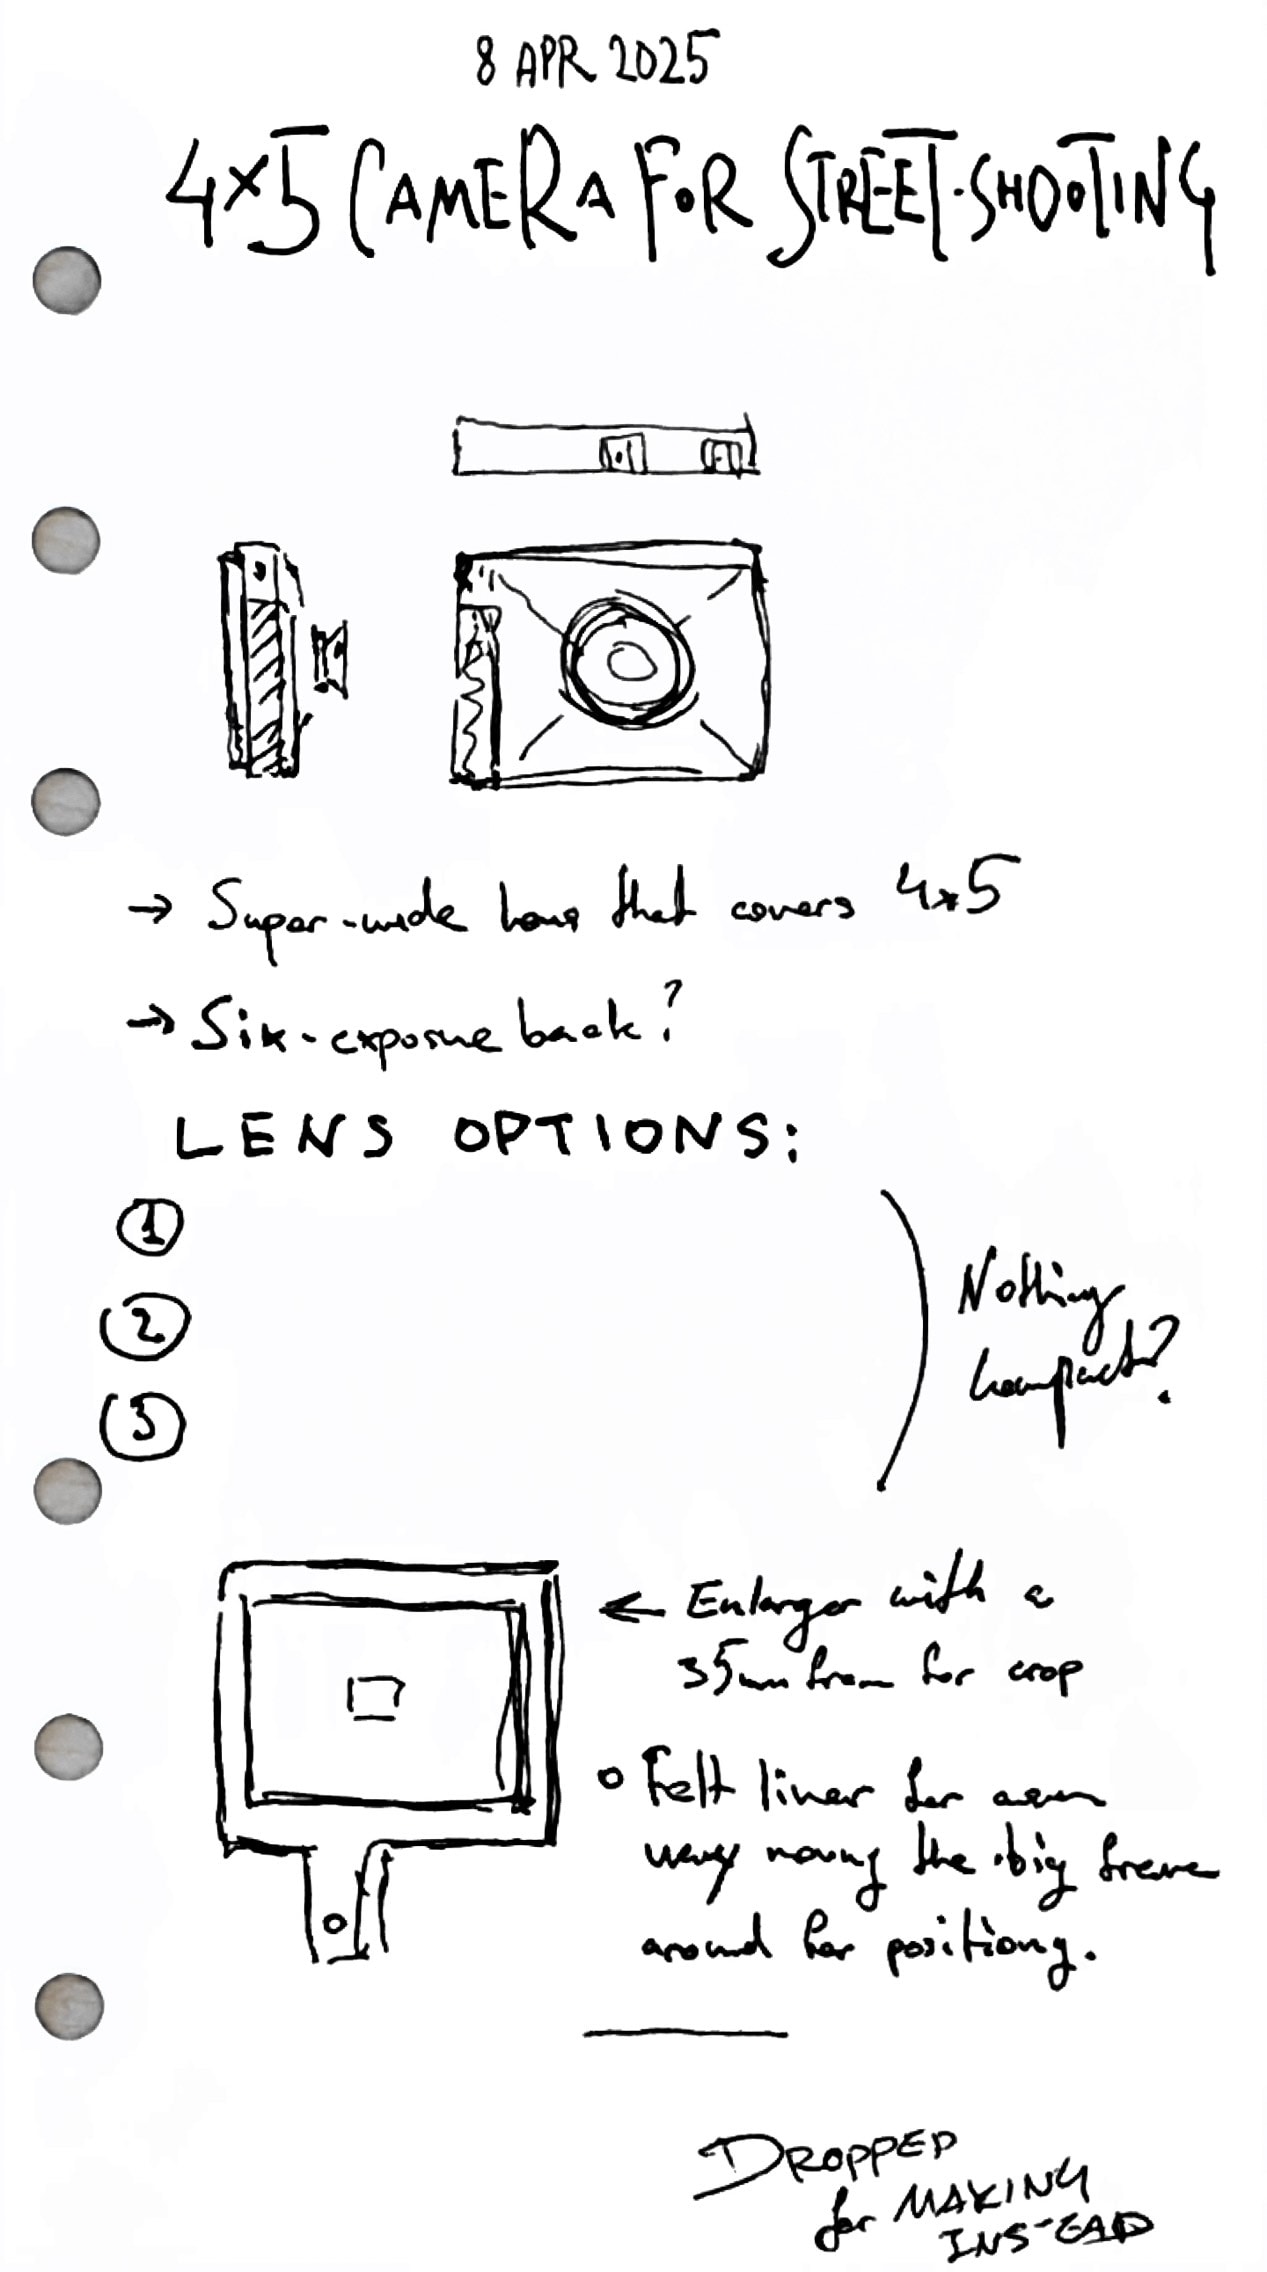 8 APR 2025
4×5 CAMERA FOR STREET-SHOOTING
→ Super-wide lens that covers 4×5
→ Six-exposure back?
LENS OPTIONS:
①
②
③
Nothing
compact?
← Enlarger with a
35mm frame for crop
o Felt liner for
moving the big frame
around for positiong.
DROPPED
for MAKING
INSTEAD